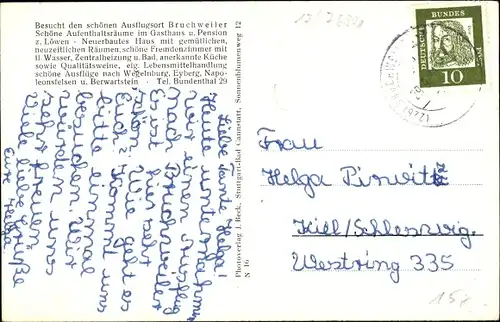 Besucht den schönen Ausflugsort Bruchweiler
Schöne Aufenthaltsräume im Gasthaus u. Pension
z. Löwen - Neuerbautes Haus mit gemütlichen,
neuzeitlichen Räumen, schöne Fremdenzimmer mit
fl. Wasser, Zentralheizung u. Bad, anerkannte Küche
sowie Qualitätsweine, eig. Lebensmittelhandlung
schöne Ausflüge nach Wegelnburg, Eyberg, Napo-
leonsfelsen u. Berwartstein - Tel. Bundenthal 29
Liebe Tante Helga!
Heute unternahmen
wir einen Ausflug
nach Bruchweiler
Es ist hier sehr
schön. Wie geht es
Euch? Kommt uns
bitte einmal
besuchen. Wir
würden uns
sehr freuen
Viele liebe Grüße
Eure Helga
Photoverlag J. Beck, Stuttgart-Bad Cannstatt, Sonnenblumenweg 12
N 16
DEUTSCHE BUNDESPOST
10
Frau
Helga
Kiel/Schleswig.
Westring 335